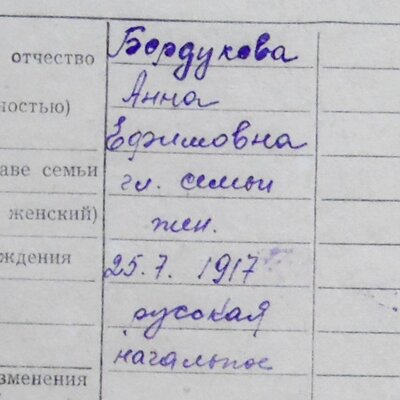 Бордукова
отчество
Анна
ностью)
Ефимовна
аве семьи гл. семьи
женский) жен.
ждения 25.7. 1917
русская
начальное
зменения